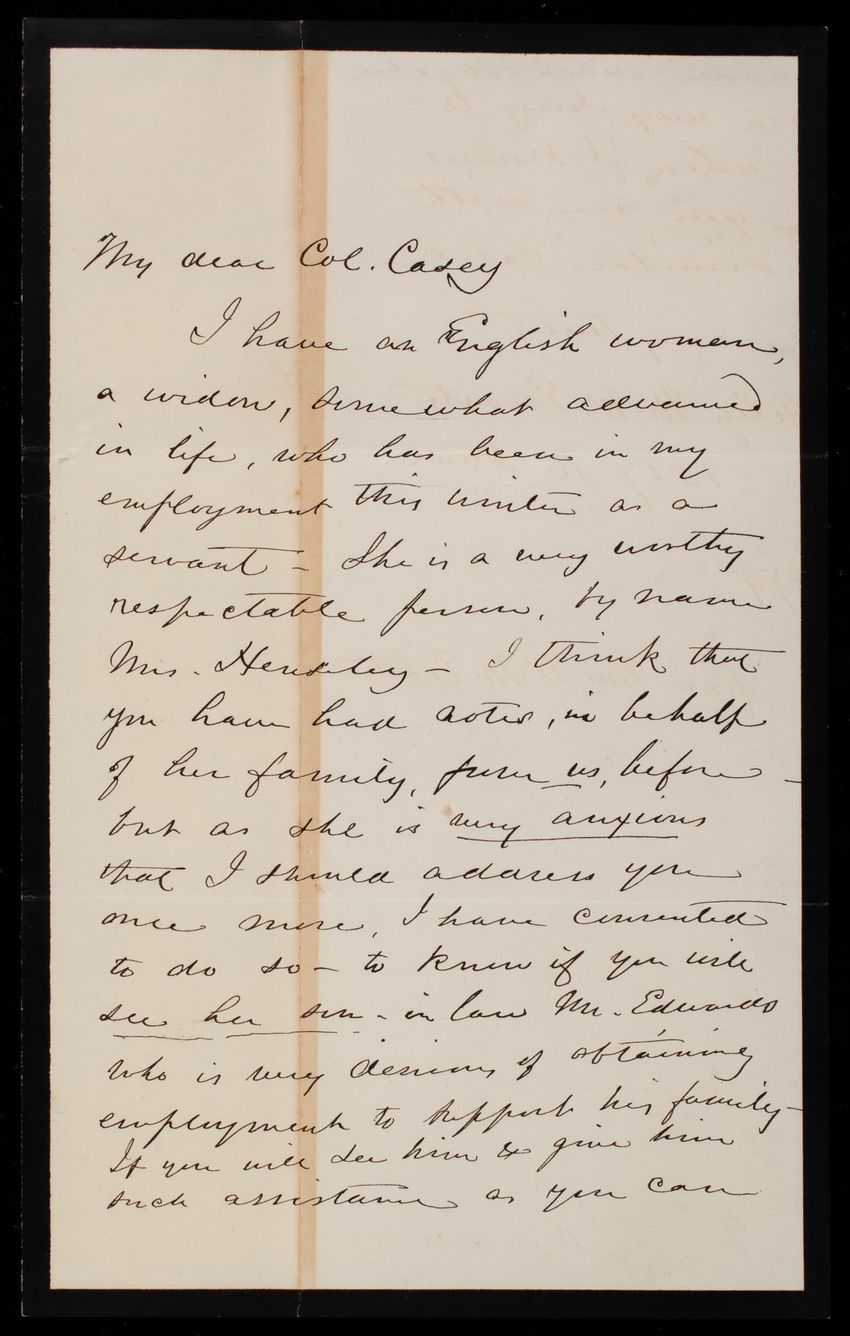 My dear Col. Casey
I have an English woman,
a widow, somewhat advanced
in life, who has been in my
employment this winter as a
servant - She is a very worthy
respectable person, by name
Mrs. Hensley - I think that
you have had notes, in behalf
of her family, from us, before -
but as she is very anxious
that I should address you
once more, I have consented
to do so - to know if you will
see her son-in law Mr. Edwards
who is very desirous of obtaining
employment to support his family -
If you will see him & give him
such assistance as you can